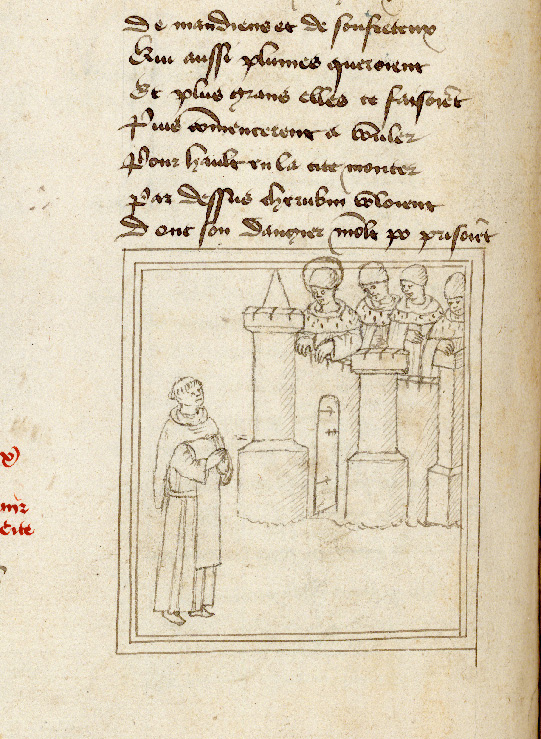 De mandiens et de souffreteux
Qui aussi plumes queroient
Et plus grans elles se faisoiẽt
Puis cõmencerent a vouler
Pour hault en la cite monter
Par dessus cherubin voloient
Dont son dangier molt po prisoiẽt
x)
Cite